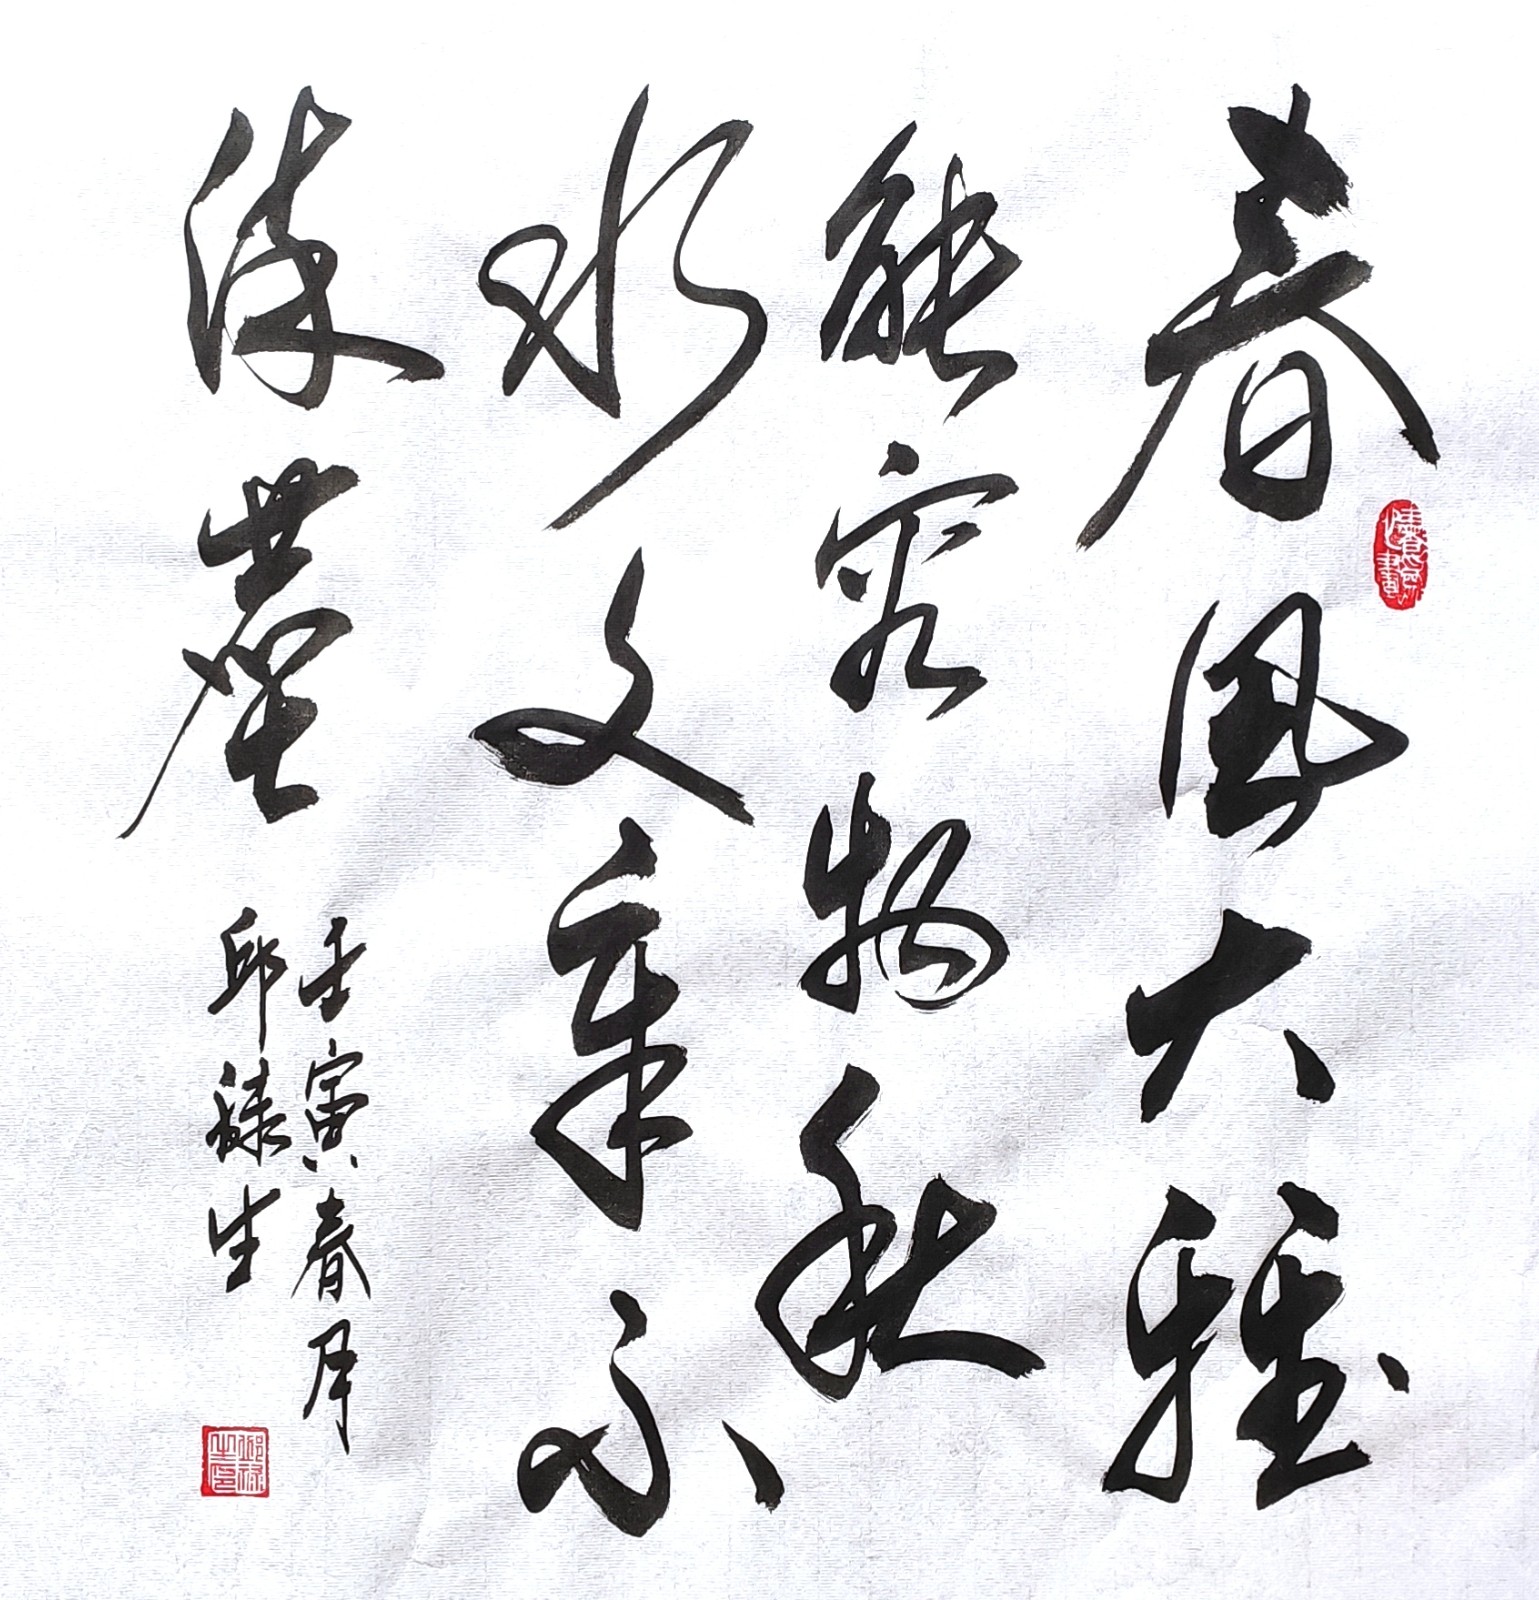 春風大雅
能容物秋
水文章不
染塵
壬寅春月
邱祿生